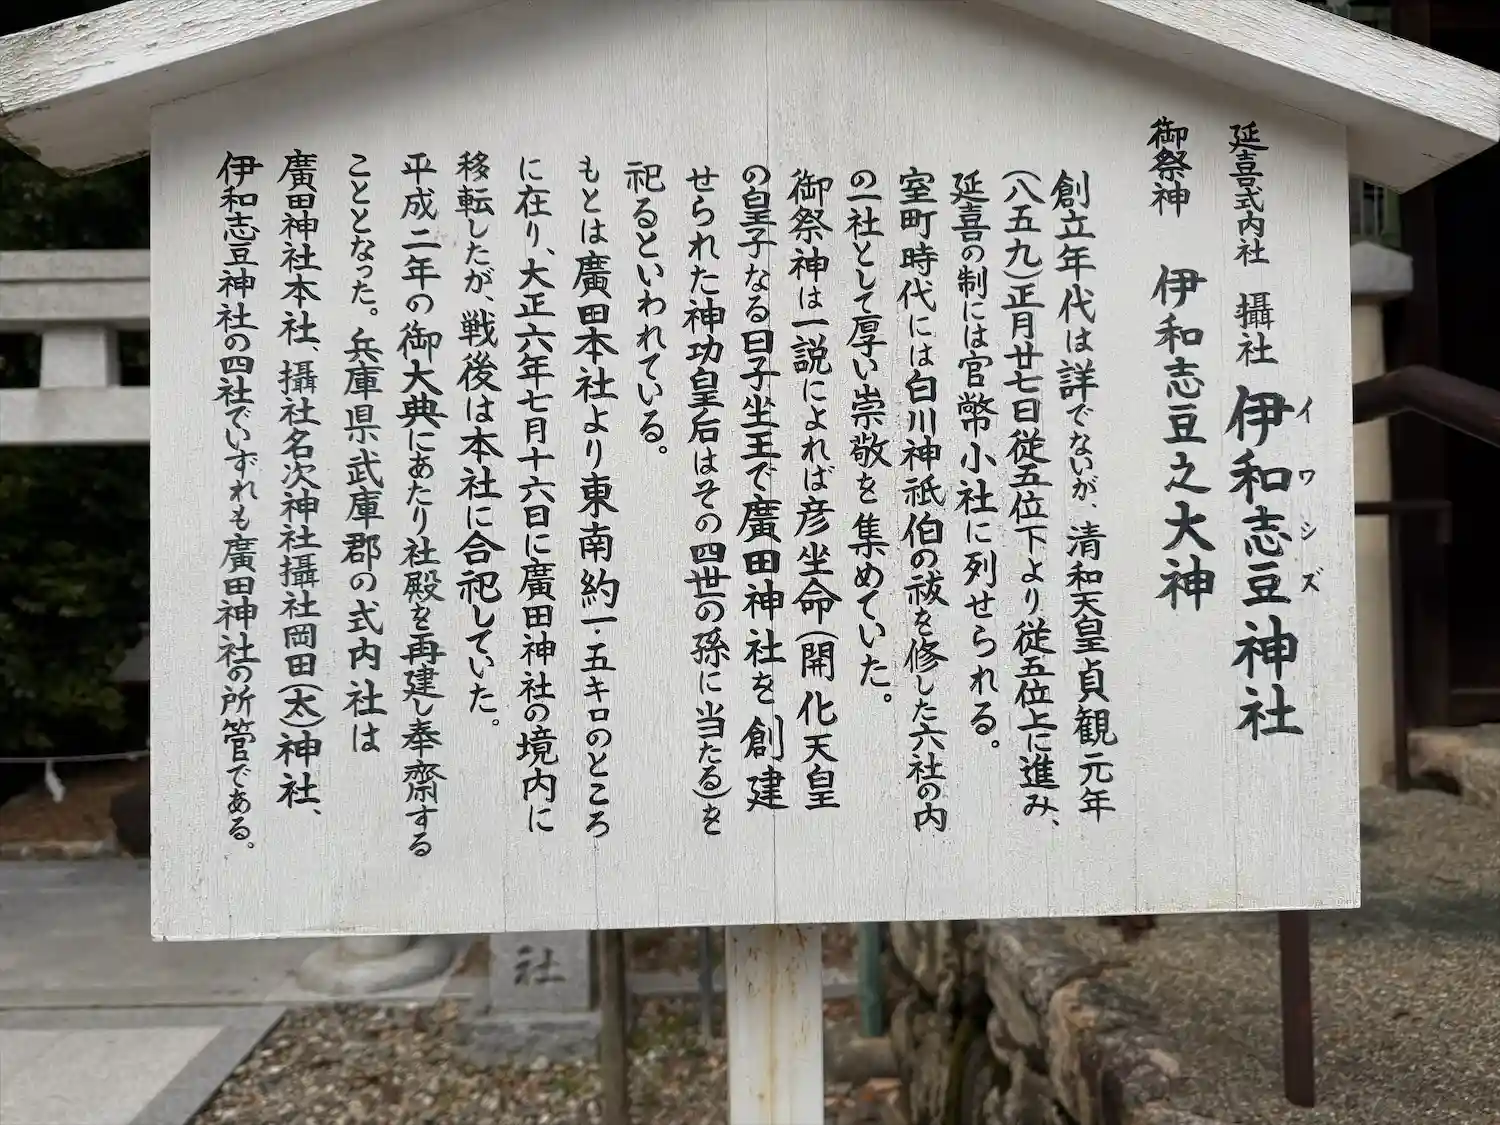 延喜式内社　攝社　伊和志豆神社
イワシズ
御祭神　伊和志豆之大神
創立年代は詳でないが、清和天皇貞観元年
(八五九)正月廿七日従五位下より従五位上に進み、
延喜の制には官幣小社に列せられる。
室町時代には白川神祇伯の祓を修した六社の内
の一社として厚い崇敬を集めていた。
御祭神は一説によれば彦坐命(開化天皇
の皇子なる日子坐王で廣田神社を創建
せられた神功皇后はその四世の孫に当たる)を
祀るといわれている。
もとは廣田本社より東南約一・五キロのところ
に在り、大正六年七月十六日に廣田神社の境内に
移転したが、戦後は本社に合祀していた。
平成二年の御大典にあたり社殿を再建し奉齋する
こととなった。兵庫県武庫郡の式内社は
廣田神社本社、攝社名次神社攝社岡田(太)神社、
伊和志豆神社の四社でいずれも廣田神社の所管である。
社